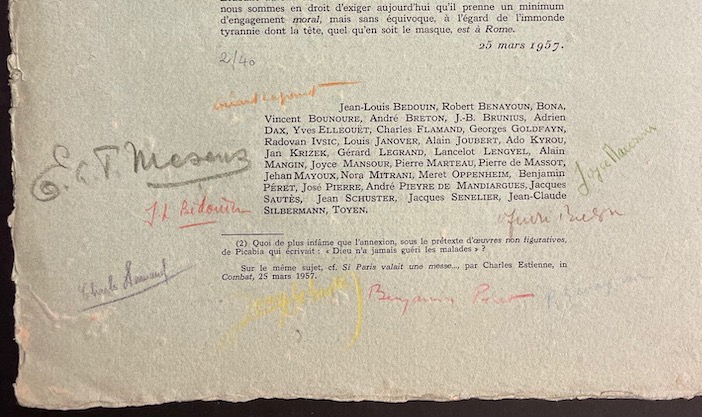 nous sommes en droit d'exiger aujourd'hui qu'il prenne un minimum
d'engagement moral, mais sans équivoque, à l'égard de l'immonde
tyrannie dont la tête, quel qu'en soit le masque, est à Rome.
25 mars 1957.
2/40
Jean-Louis BEDOUIN, Robert BENAYOUN, BONA,
Vincent BOUNOURE, André BRETON, J.-B. BRUNIUS, Adrien
DAX, Yves ELLEOUËT, Charles FLAMAND, Georges GOLDFAYN,
Radovan IVSIC, Louis JANOVER, Alain JOUBERT, Ado KYROU,
Jan KRIZEK, Gérard LEGRAND, Lancelot LENGYEL, Alain
MANGIN, Joyce MANSOUR, Pierre MARTEAU, Pierre de MASSOT,
Jehan MAYOUX, Nora MITRANI, Meret OPPENHEIM, Benjamin
PÉRET, José PIERRE, André PIEYRE DE MANDIARGUES, Jacques
SAUTÈS, Jean SCHUSTER, Jacques SENELIER, Jean-Claude
SILBERMANN, TOYEN.
E. L. T. Mesens
Joyce Mansour
J L Bédouin
André Breton
(2) Quoi de plus infâme que l'annexion, sous le prétexte d'œuvres non figuratives,
de Picabia qui écrivait : « Dieu n'a jamais guéri les malades » ?
Sur le même sujet, cf. Si Paris valait une messe..., par Charles Estienne, in
Combat, 25 mars 1957.
Charles Flamand
Benjamin Péret